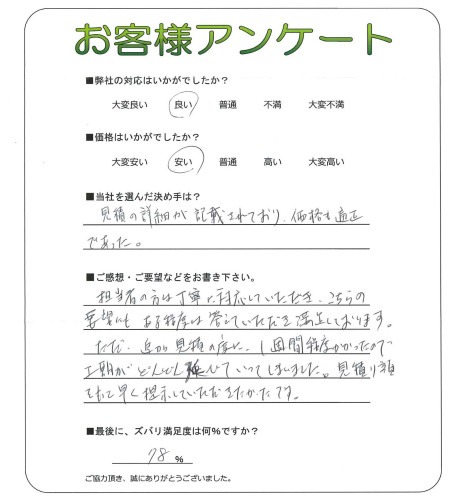 お客様アンケート
■弊社の対応はいかがでしたか？
大変良い 良い 普通 不満 大変不満
■価格はいかがでしたか？
大変安い 安い 普通 高い 大変高い
■当社を選んだ決め手は？
見積の詳細が記載されており、価格も適正
であった。
■ご感想・ご要望などをお書き下さい。
担当者の方は丁寧に対応していただき、こちらの
要望にも ある程度は答えていただき満足しております。
ただ、見積の度に、1週間程度かかったので
工期がどんどん延びていってしまいました。見積り額
をもって早く提示していただきたかったです。
■最後に、ズバリ満足度は何%ですか？
78 %
ご協力頂き、誠にありがとうございました。